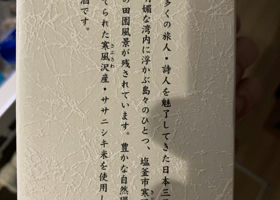 多くの旅人・詩人を魅了してきた日本三
媚な湾内に浮かぶ島々のひとつ、塩釜市寒
の田園風景が残されています。豊かな自然環
てられた寒風沢産・ササニシキ米を使用し
酒です。